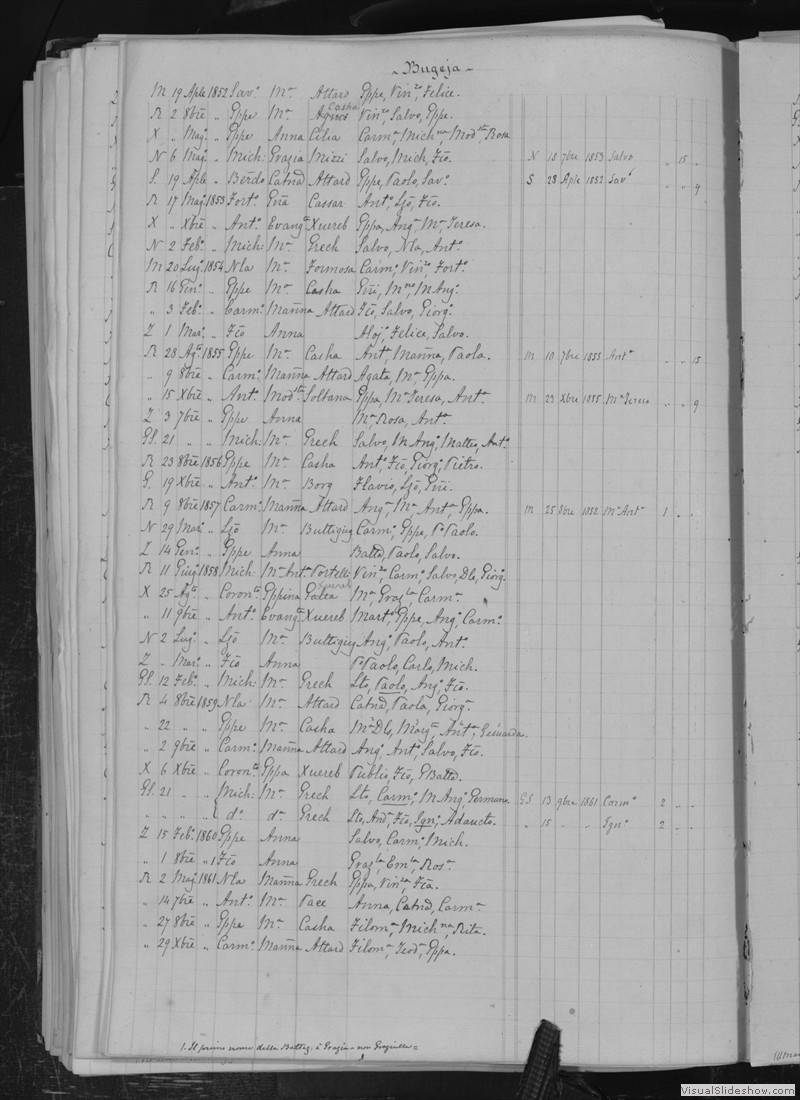 ~ Bugeja ~
M 19 Aple 1852 Sav.º M.ª Attard Gppe, Vin.zo, Felice.
R 2 8bre „ Gppe M.ª Casha Vin.zo, Salvo, Gppe.
X „ Mag.º „ Gppe Anna Cilia Carm.ª, Mich.na, Mod.sta, Rosa
N 6 Mag.º „ Mich: Grazia Mizzi Salvo, Mich, Fīo. N 18 7bre 1853 Salvo „ 15 „
S. 19 Aple „ Berdo Catnā Attard Gppe, Paolo, Sav.º S 28 Aple 1852 Sav.º „ „ 9
R 17 Mag.º 1853 Fort.º Gnā Cassar Ant.º, Ljō, Fīo.
X „ Xbre „ Ant.º Evang.ta Xuereb Gppa, Ang.ª, M.ª, Teresa.
N 2 Feb.º „ Mich: M.ª Grech Salvo, Nla, Ant.º
M 20 Lug.º 1854 Nla M.ª Formosa Carm.º, Vin.zo, Fort.º
R 16 Gen.º „ Gppe M.ª Casha Gnī, M Ang.º
„ 3 Feb.º „ Carm.º Mañna Attard Fīo, Salvo, Giorg.º
Z 1 Mar.º „ Fīo Anna Aloj.º, Felice, Salvo.
R 28 Ag.º 1855 Gppe M.ª Casha Ant.ª, Mañna, Paola. M 10 7bre 1855 Ant.ª „ „ 15
„ 9 8bre „ Carm.º Mañna Attard Agata, M.ª, Gppa.
„ 15 Xbre „ Ant.º Mod.sta Soltana Gppa, M.ª Teresa, Ant.ª M 23 Xbre 1855 M.ª Teresa „ „ 9
Z 3 7bre „ Gppe Anna M.ª Rosa, Ant.ª
GS. 21 „ „ Mich: M.ª Grech Salvo, M Ang.º, Matteo, Ant.º
R 23 8bre 1856 Gppe M.ª Casha Ant.º, Fīo, Giorg.º, Pietro.
G. 19 Xbre „ Ant.º M.ª Borg Flavio, Ljō, Gnī.
R 9 8bre 1857 Carm.º Mañna Attard Ang.ª, M.ª Ant.ª, Gppa. M 25 8bre 1852 M.ª Ant.ª 1 „ „
N 29 Mar.º „ Ljō M.ª Buttigieg Carm.º, Gppe, P. Paolo.
Z 14 Gen.º „ Gppe Anna Batta, Paolo, Salvo.
R 11 Giug.º 1858 Mich: M.ª Ant.ª Portelli Vin.zo, Carm.º, Salvo, Dlo, Giorg.º
X 25 Ag.º „ Coron.to Gppina Galea M.ª, Graz.la, Carm.ª
„ 11 9bre „ Ant.º Evang.ta Xuereb Mart.º, Gppe, Ang.º, Carm.º
N 2 Lug.º „ Ljō M.ª Buttigieg Ang.º, Paolo, Ant.º
Z „ Mar.º „ Fīo Anna P. Paolo, Carlo, Mich.
GS. 12 Feb.º „ Mich: M.ª Grech Lto, Paolo, Ang.º, Fīo.
R 4 8bre 1859 Nla M.ª Attard Catnā, Paola, Giorg.ª
„ 22 „ „ Gppe M.ª Casha M.ª Dlo, Marg.ta, Ant.ª, Genuarda.
„ 2 9bre „ Carm.º Mañna Attard Ang.º, Ant.º, Salvo, Fīo.
X 6 Xbre „ Coron.to Gppa Xuereb Publio, Fīo, G Batta.
GS. 21 „ „ Mich: M.ª Grech Lto, Carm.º, M Ang.º, Germano. GS 13 9bre 1861 Carm.º 2 „ „
„ „ „ „ d.º d.ª Grech Lto, And.ª, Fīo, Ign.º, Adaucto. „ 15 „ „ Ign.º 2 „ „
Z 15 Feb.º 1860 Gppe Anna Salvo, Carm.º, Mich.
„ 1 8bre „ 1 Fīo Anna Graz.la, Em.la, Ros.ª
R 2 Mag.º 1861 Nla Mañna Grech Gppa, Vin.za, Fīa.
„ 14 7bre „ Ant.º M.ª Pace Anna, Catnā, Carm.ª
„ 27 8bre „ Gppe M.ª Casha Filom.ª, Mich.na, Rita.
„ 29 Xbre „ Carm.º Mañna Attard Filom.ª, Teod.ª, Gppa.
1. Il primo nome della Battez: è Grazia non Graziella =
VisualSlideshow.com